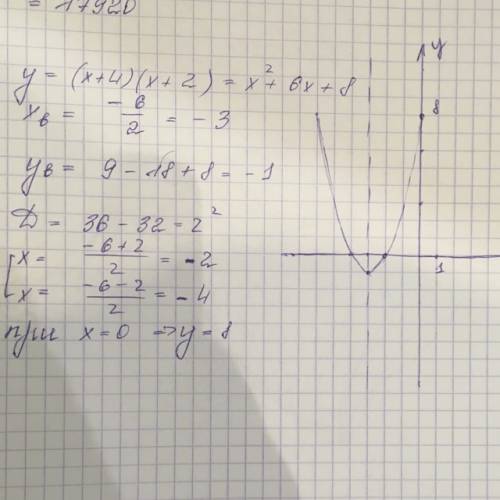 = 17920
y = (x+4)(x+2) = x² + 6x + 8
xв = -6/2 = -3
yв = 9 - 18 + 8 = -1
D = 36 - 32 = 2²
[ x = (-6+2)/2 = -2
x = (-6-2)/2 = -4
при x=0 => y = 8
y
8
1